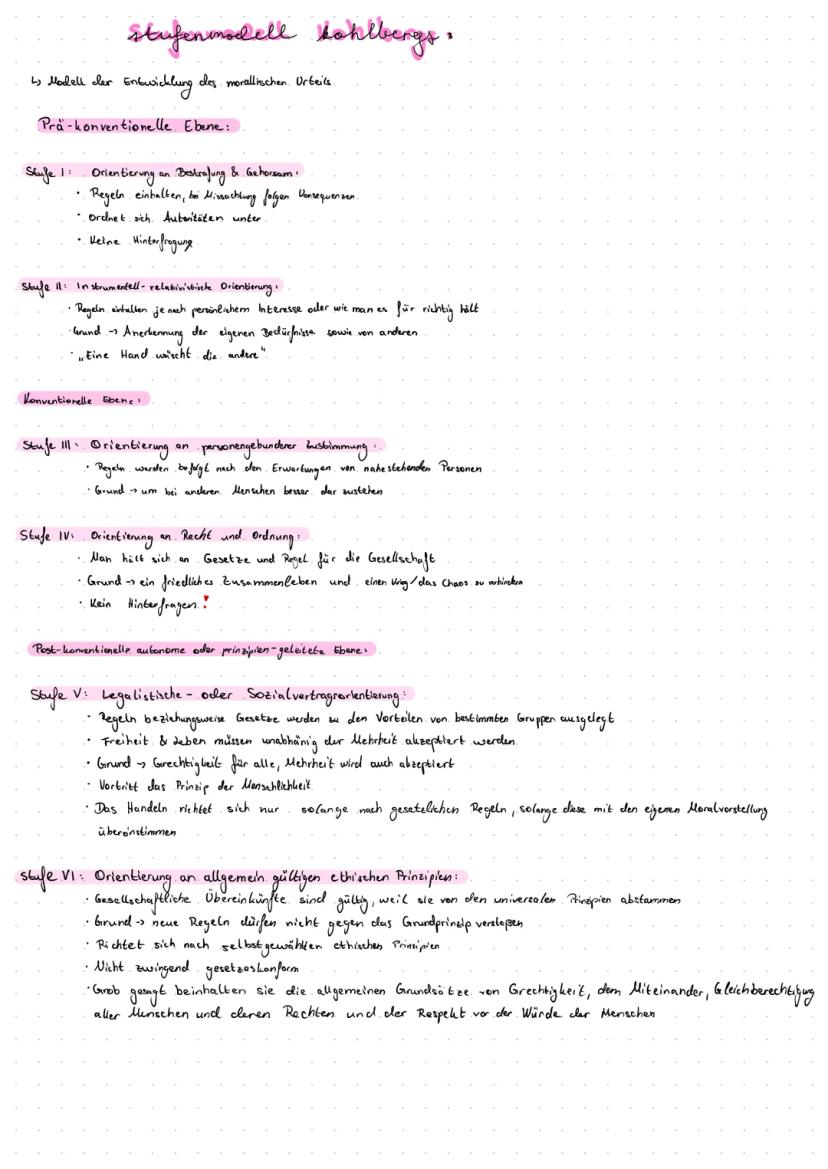 Stufenmodell Kohlbergs:
↳ Modell der Entwicklung des morallischen Urteils
Prä-konventionelle Ebene:
Stufe I: Orientierung an Bestrafung & Gehorsam:
• Regeln einhalten, bei Missachtung folgen Konsequenzen
• Ordnet sich Autoritäten unter
• Keine Hinterfragung
Stufe II: Instrumentell-relativistische Orientierung:
• Regeln einhalten je nach persönlichem Interesse oder wie man es für richtig hält
• Grund → Anerkennung der eigenen Bedürfnisse sowie von anderen
• „Eine Hand wäscht die andere"
Konventionelle Ebene:
Stufe III: Orientierung an personengebundener Zustimmung:
• Regeln werden befolgt nach den Erwartungen von nahestehenden Personen
• Grund → um bei anderen Menschen besser dar zustehen
Stufe IV: Orientierung an Recht und Ordnung:
• Man hält sich an Gesetze und Regel für die Gesellschaft
• Grund → ein friedliches Zusammenleben und einen Krieg/das Chaos zu verhindern
• Kein Hinterfragen!
Post-konventionelle autonome oder prinzipien-geleitete Ebene:
Stufe V: Legalistische- oder Sozialvertragsorientierung:
• Regeln beziehungsweise Gesetze werden zu den Vorteilen von bestimmten Gruppen ausgelegt
• Freiheit & Leben müssen unabhänig der Mehrheit akzeptiert werden
• Grund → Gerechtigkeit für alle, Mehrheit wird auch akzeptiert
• Vertritt das Prinzip der Menschlichkeit
• Das Handeln richtet sich nur solange nach gesetzlichen Regeln, solange diese mit den eigenen Moralvorstellung
übereinstimmen
Stufe VI: Orientierung an allgemein gültigen ethischen Prinzipien:
• Gesellschaftliche Übereinkünfte sind gültig, weil sie von den universalen Prinzipien abstammen
• Grund → neue Regeln dürfen nicht gegen das Grundprinzip verstoßen
• Richtet sich nach selbstgewählten ethischen Prinzipien
• Nicht zwingend gesetzeskonform
• Grob gesagt beinhalten sie die allgemeinen Grundsätze von Grechtigkeit, dem Miteinander, Gleichberechtigung
aller Menschen und deren Rechten und der Respekt vor der Würde der Menschen